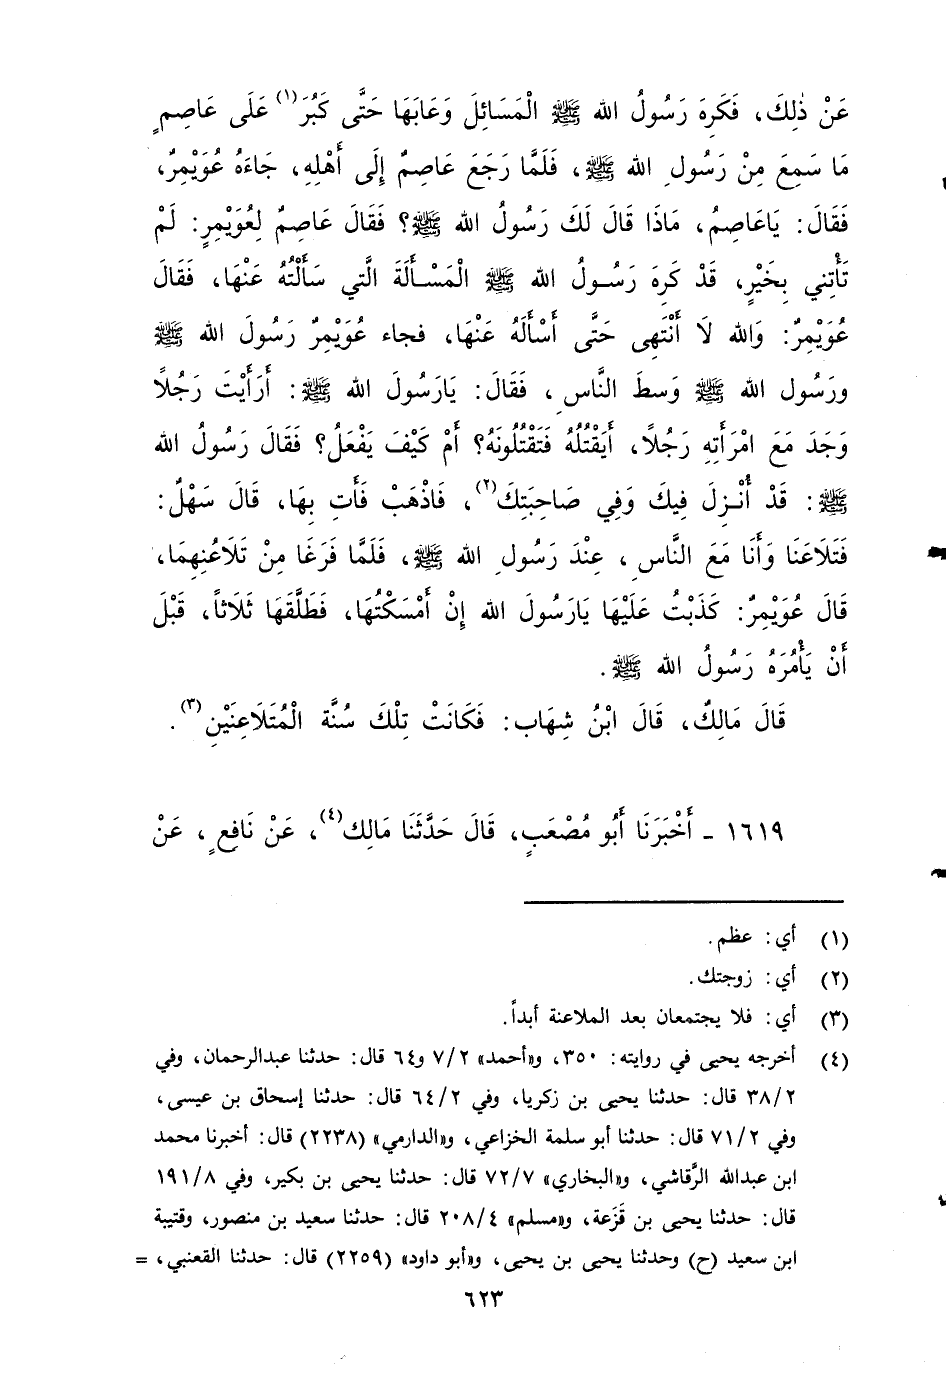 عَنْ ذٰلِكَ، فَكَرِهَ رَسُولُ الله ﷺ الْمَسَائِلَ وَعَابَهَا حَتَّى كَبُرَ (١) عَلَى عَاصِمٍ
مَا سَمِعَ مِنْ رَسُولِ الله ﷺ، فَلَمَّا رَجَعَ عَاصِمٌ إِلَى أَهْلِهِ، جَاءَهُ عُوَيْمِرٌ،
فَقَالَ: يَاعَاصِمُ، مَاذَا قَالَ لَكَ رَسُولُ الله ﷺ؟ فَقَالَ عَاصِمٌ لِعُوَيْمِرٍ: لَمْ
تَأْتِنِي بِخَيْرٍ، قَدْ كَرِهَ رَسُولُ الله ﷺ الْمَسْأَلَةَ الَّتِي سَأَلْتُهُ عَنْهَا، فَقَالَ
عُوَيْمِرٌ: وَالله لَا أَنْتَهِى حَتَّى أَسْأَلَهُ عَنْهَا، فجاء عُوَيْمِرٌ رَسُولَ الله ﷺ
ورَسُول الله ﷺ وَسطَ النَّاسِ، فَقَالَ: يَارَسُولَ الله ﷺ: أَرَأَيْتَ رَجُلاً
وَجَدَ مَعَ امْرَأَتِهِ رَجُلاً، أَيَقْتُلُهُ فَتَقْتُلُونَهُ؟ أَمْ كَيْفَ يَفْعَلُ؟ فَقَالَ رَسُولُ الله
ﷺ: قَدْ أُنْزِلَ فِيكَ وَفِي صَاحِبَتِكَ (٢)، فَاذْهَبْ فَأْتِ بِهَا، قَالَ سَهْلٌ:
فَتَلَاعَنَا وَأَنَا مَعَ النَّاسِ، عِنْدَ رَسُولِ الله ﷺ، فَلَمَّا فَرَغَا مِنْ تَلَاعُنِهِمَا،
قَالَ عُوَيْمِرٌ: كَذَبْتُ عَلَيْهَا يَارَسُولَ الله إِنْ أَمْسَكْتُهَا، فَطَلَّقَهَا ثَلَاثاً، قَبْلَ
أَنْ يَأْمُرَهُ رَسُولُ الله ﷺ.
قَالَ مَالِكٌ، قَالَ ابْنُ شِهَاب: فَكَانَتْ تِلْكَ سُنَّة الْمُتَلَاعِنَيْنِ (٣).
١٦١٩ - أَخْبَرَنَا أَبُو مُصْعَبٍ، قَالَ حَدَّثَنَا مَالِك (٤)، عَنْ نَافِعٍ، عَنْ
(١) أي: عظم.
(٢) أي: زوجتك.
(٣) أي: فلا يجتمعان بعد الملاعنة أبداً.
(٤) أخرجه يحيى في روايته: ٣٥٠، و«أحمد» ٧/٢ و٦٤ قال: حدثنا عبدالرحمان، وفي
٣٨/٢ قال: حدثنا يحيى بن زكريا، وفي ٦٤/٢ قال: حدثنا إسحاق بن عيسى،
وفي ٧١/٢ قال: حدثنا أبو سلمة الخزاعي، و«الدارمي» (٢٢٣٨) قال: أخبرنا محمد
ابن عبدالله الرَّقاشي، و«البخاري» ٧٢/٧ قال: حدثنا يحيى بن بكير، وفي ١٩١/٨
قال: حدثنا يحيى بن قَزَعة، و«مسلم» ٢٠٨/٤ قال: حدثنا سعيد بن منصور، وقتيبة
ابن سعيد (ح) وحدثنا يحيى بن يحيى، و«أبو داود» (٢٢٥٩) قال: حدثنا القعنبي، =
٦٢٣